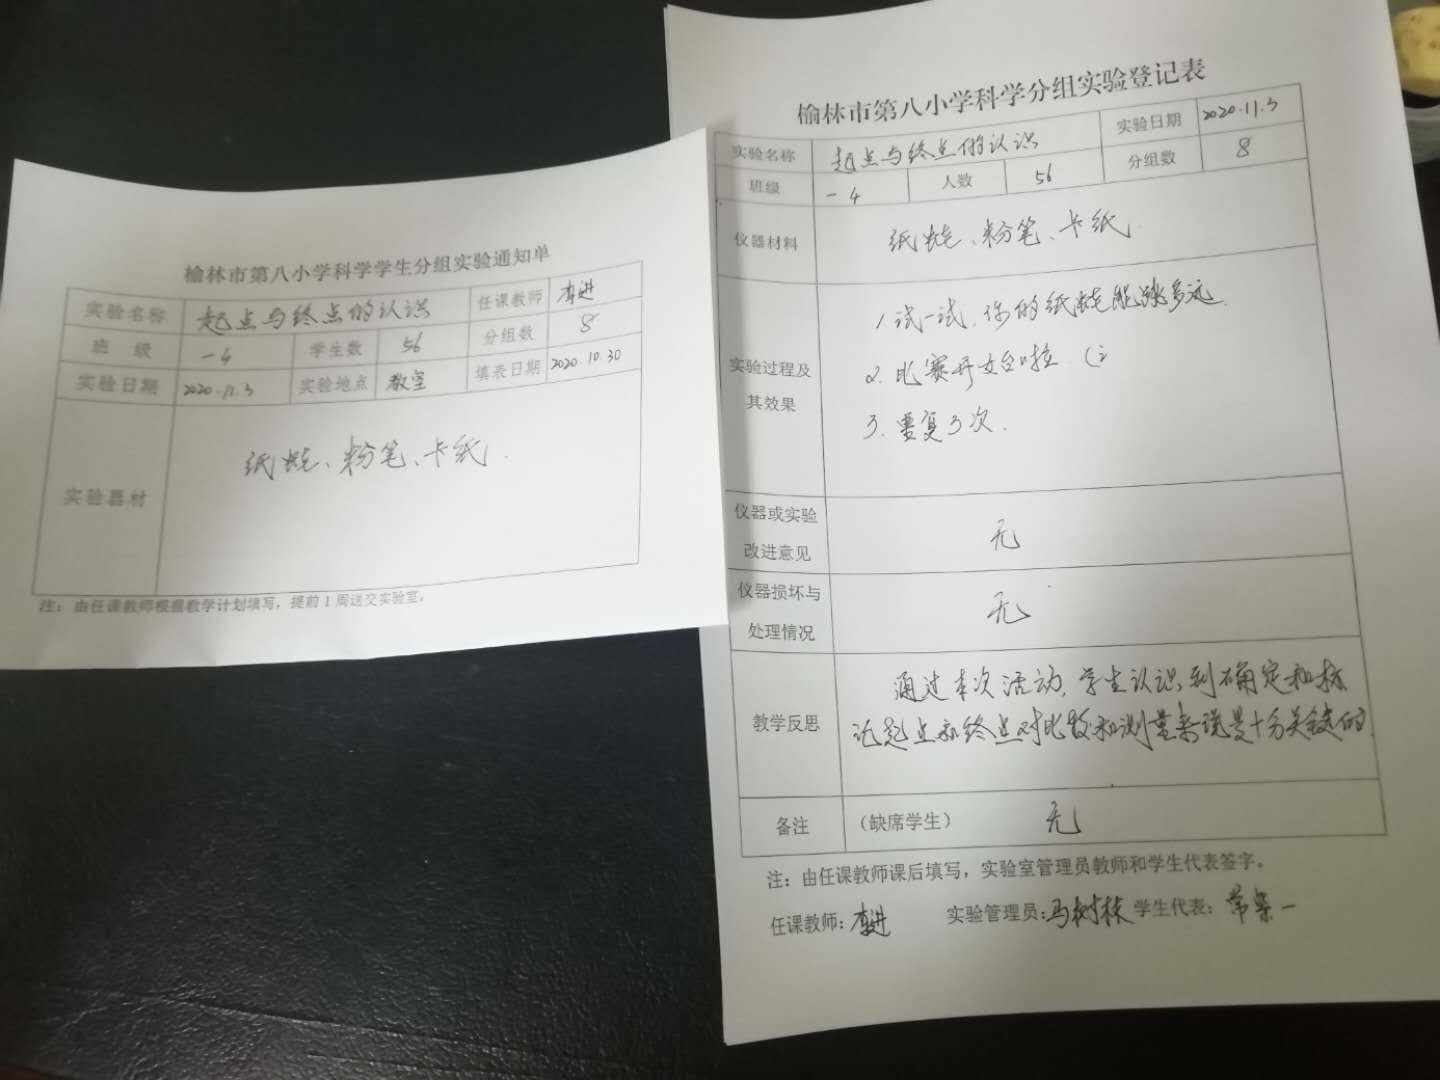 榆林市第八小学科学学生分组实验通知单
实验名称 起点与终点的认识 任课教师 李进
班 级 一4 学生数 56 分组数 8
实验日期 2020.11.3 实验地点 教室 填表日期 2020.10.30
实验器材 纸蛙、粉笔、卡纸.
注：由任课教师根据教学计划填写，提前1周送交实验室。
榆林市第八小学科学分组实验登记表
实验名称 起点与终点的认识 实验日期 2020.11.3
班级 一4 人数 56 分组数 8
仪器材料 纸蛙、粉笔、卡纸.
实验过程及
其效果
1.试一试,你的纸蛙能跳多远.
2.比赛开始啦.
3.重复3次.
仪器或实验
改进意见
无
仪器损坏与
处理情况
无
教学反思
通过本次活动,学生认识到确定和标
记起点和终点对比较和测量来说是十分关键的.
备注 （缺席学生） 无
注：由任课教师课后填写，实验室管理员教师和学生代表签字。
任课教师：李进 实验管理员：马树林 学生代表：常 一